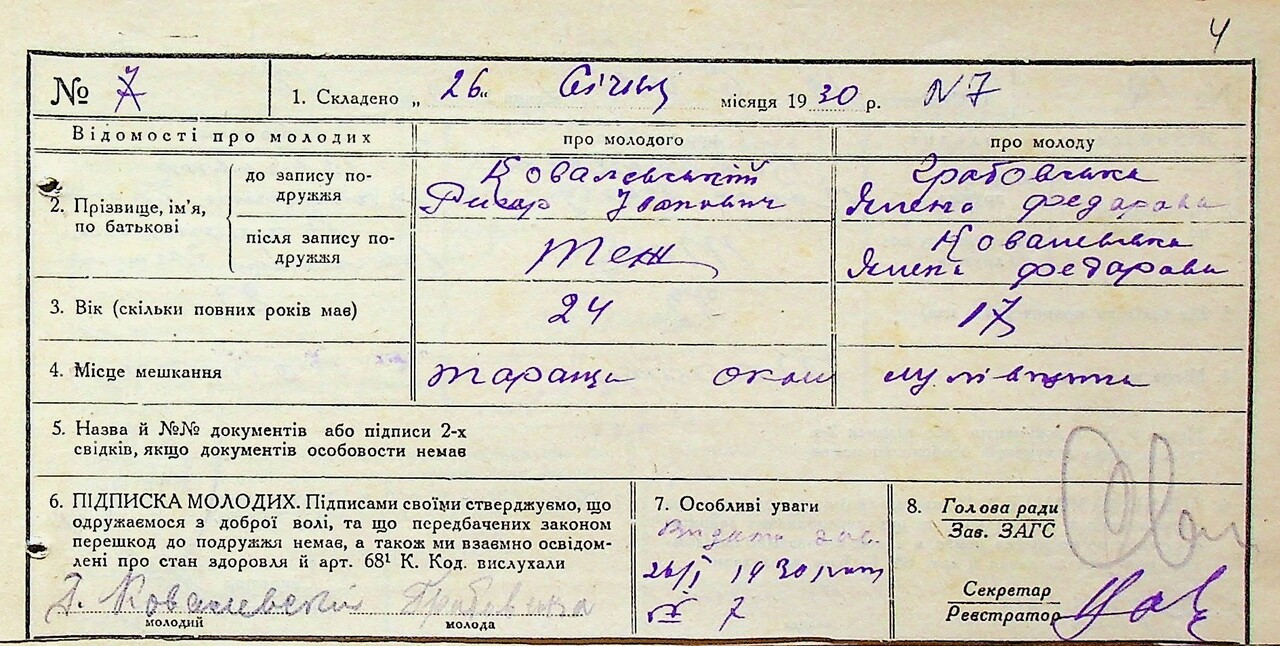 4
№ 7 1. Складено „ 26 “ Січня місяця 1930 р. N7
Відомості про молодих про молодого про молоду
2. Прізвище, ім’я, по батькові
до запису подружжя
Ковалевський Грабовська
Іванович Федарова
після запису подружжя
Теж Ковалевська
Федарова
3. Вік (скільки повних років має) 24 17
4. Місце мешкання Тараща
5. Назва й №№ документів або підписи 2-х
свідків, якщо документів особовости немає
6. ПІДПИСКА МОЛОДИХ. Підписами своїми стверджуємо, що
одружаємося з доброї волі, та що передбачених законом
перешкод до подружжя немає, а також ми взаємно освідом-
лені про стан здоровля й арт. 68¹ К. Код. вислухали
Ковалевский Грабовська
молодий молода
7. Особливі уваги
26/I 1930
№ 7
8. Голова ради
Зав. ЗАГС
Секретар
Реєстратор